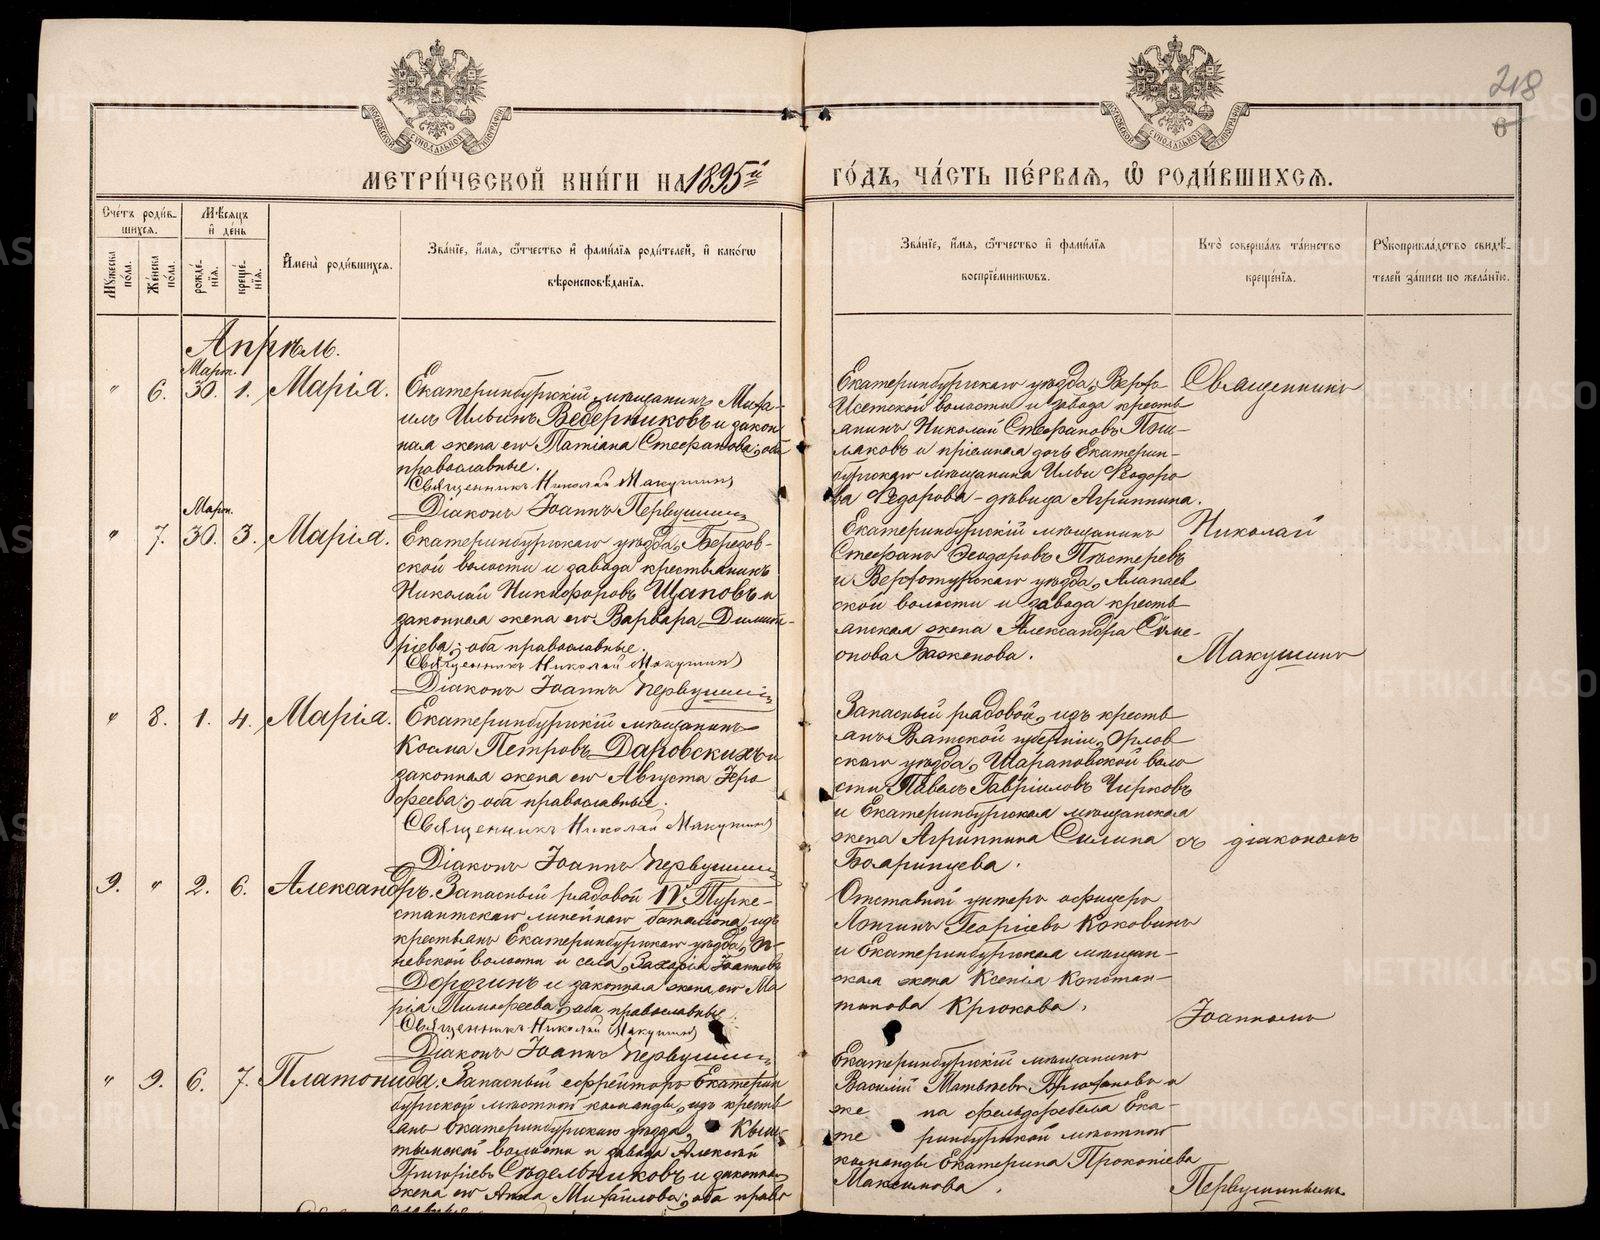 218
МЕТРИ́ЧЕСКОЙ КНИ́ГИ НА 1895й
ГО́ДЪ, ЧА́СТЬ ПЕ́РВАЯ, Ѡ РОДИ́ВШИХСЯ.
Сче́тъ роди́в-
шихся.
Мѣсяцъ
и҆ день
Мꙋжеска по́ла.
Же́нска по́ла.
рожде́нїѧ.
креще́нїѧ.
И҆мена̀ роди́вшихся.
Зва́нїе, и҆́мя, ѻ҆́тчество и҆ фами́лїя роди́телей, и҆ како́гѡ
вѣроисповѣ́данїя.
Зва́нїе, и҆́мя, ѻ҆́тчество и҆ фами́лїя
воспрїе́мникѡвъ.
Кто̀ соверша́лъ та́инство
креще́нїя.
Рꙋкоприкла́дство свидѣ́-
телей за́писи по жела́нїю.
Апрѣль.
Март.
" 6. 30. 1. Марія.
Екатеринбургскій мѣщанинъ Миха-
илъ Ильинъ Ведерниковъ и закон
ная жена его Татіана Стефанова, оба
православные.
Священникъ Николай Макушинъ
Діаконъ Іоаннъ Первушинъ
Екатеринбургскаго уѣзда, Верхъ
Исетской волости и завода кресть
янинъ Николай Стефановъ
и пріемная дочь Екатерин-
бургскаго мѣщанина Ильи Ѳеодоро
ва Ѳедорова - дѣвица Агриппина.
Священникъ
Март.
" 7. 30. 3. Марія.
Екатеринбургскаго уѣзда, Березов-
ской волости и завода крестьянинъ
Николай Никифоровъ Щаповъ и
законная жена его Варвара Димит-
ріева; оба православные.
Священникъ Николай Макушинъ
Діаконъ Іоаннъ Первушинъ
Екатеринбургскій мѣщанинъ
Стефанъ Ѳеодоровъ Пастеревъ
и Верхотурскаго уѣзда, Алапаев
ской волости и завода кресть
янская жена Александра Симе-
онова Баженова.
Николай
Макушинъ
" 8. 1. 4. Марія.
Екатеринбургскій мѣщанинъ
Косма Петровъ Даровскихъ и
законная жена его Августа Іеро
феева, оба православные.
Священникъ Николай Макушинъ
Діаконъ Іоаннъ Первушинъ
Запасный рядовой, изъ кресть
янъ Вятской губерніи, Орлов
скаго уѣзда, Шарановской воло
сти Павелъ Гавріиловъ Чирковъ
и Екатеринбургская мѣщанская
жена Агриппина Силина
Бояринцева.
съ діакономъ
9. " 2. 6. Александръ.
Запасный рядовой IV Турке-
станскаго линейнаго баталіона, изъ
крестьянъ Екатеринбургскаго уѣзда,
невской волости и села, Захарія Іоанновъ
Дорогинъ и законная жена его Ма
рія Тимофеева, оба православные.
Священникъ Николай Макушинъ
Діаконъ Іоаннъ Первушинъ
Отставной унтеръ офицеръ
Лонгинъ Георгіевъ Коковинъ
и Екатеринбургская мѣщан-
ская жена Ксенія Констан-
тинова Крюкова.
Іоанномъ
" 9. 6. 7. Платонида.
Запасный ефрейторъ Екатерин
бургской мѣстной команды, изъ кресть
янъ Екатеринбургскаго уѣзда, Кыш-
тымской волости и завода Алексѣй
Григоріевъ Сѣдельниковъ и законная
жена его Анна Михайлова; оба право
славные
Екатеринбургскій мѣщанинъ
Василій Матвѣевъ и
же на фельдфебеля Ека-
те ринбургской мѣстной
команды Екатерина Прокопіева
Максимова.
Первушинымъ